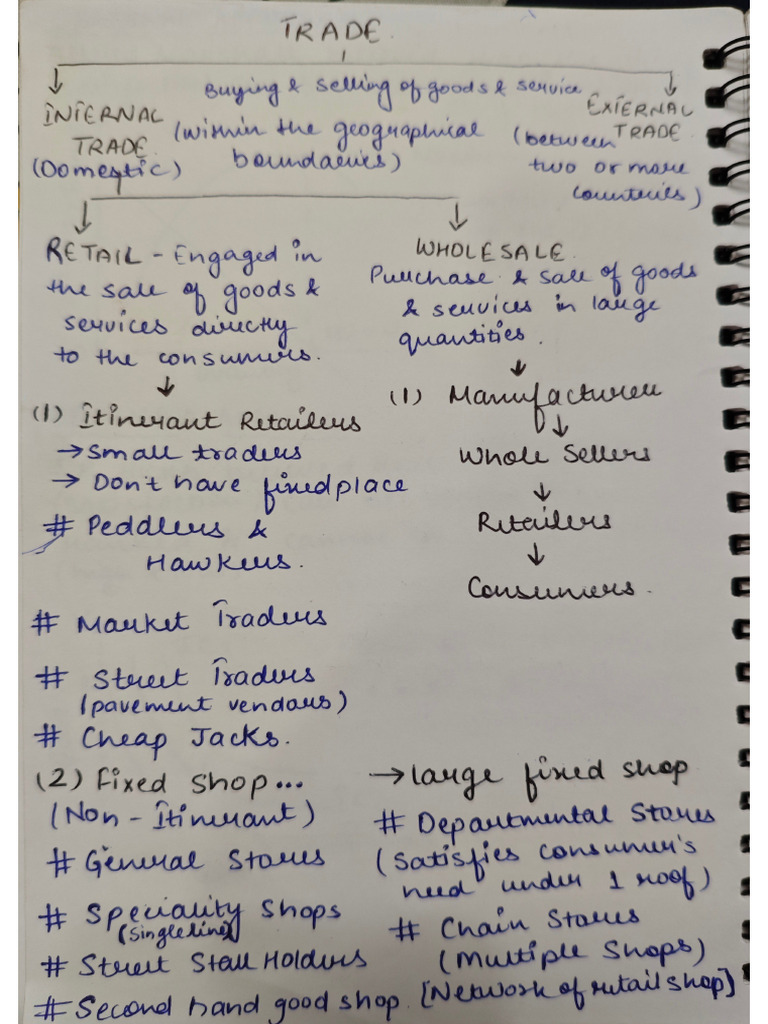 TRADE.
Buying & Selling of goods & service
INTERNAL TRADE
(Domestic)
(within the geographical
boundaries)
EXTERNAL TRADE
(between
two or more
countries)
RETAIL - Engaged in
the sale of goods &
services directly
to the consumers.
WHOLESALE
Purchase & sale of goods
& services in large
quantities.
(1) Itinerant Retailers
→ Small traders
→ Don't have fixed place
# Peddlers &
Hawkers.
# Market Traders
# Street Traders
(pavement vendors)
# Cheap Jacks.
(1) Manufacturer
↓
Whole Sellers
↓
Retailers
↓
Consumers.
(2) Fixed Shop...
(Non - Itinerant)
# General Stores
# Speciality Shops
(Single line)
# Street Stall Holders
# Second hand good shop.
→ large fixed shop
# Departmental Stores
(Satisfies consumer's
need under 1 roof)
# Chain Stores
(Multiple Shops)
[Network of retail shop]